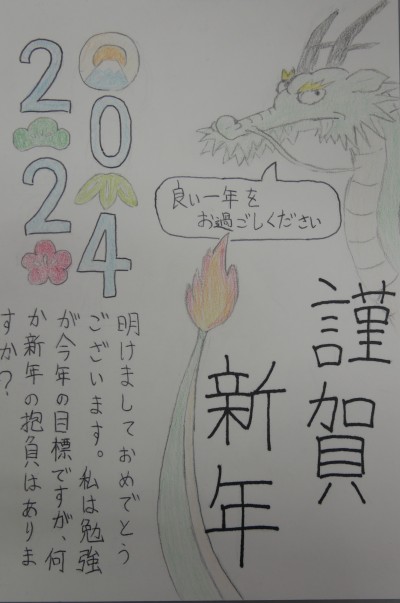 2024
良い一年を
お過ごしください
謹賀
新年
明けましておめでとう
ございます。私は勉強
が今年の目標ですが、何
か新年の抱負はありま
すか？